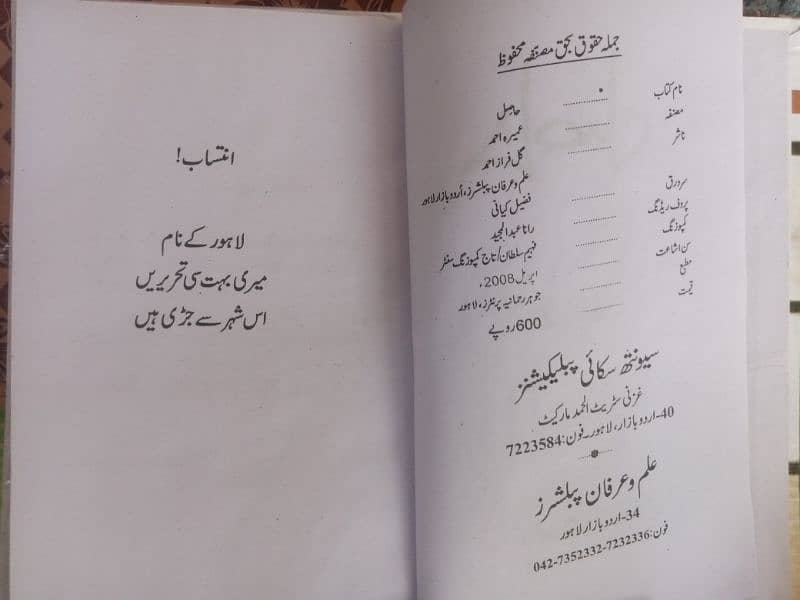 جملہ حقوق بحق مصنفہ محفوظ
نام کتاب ............... حاصل
مصنفہ ............... عمیرہ احمد
ناشر ............... گل فراز احمد
علم و عرفان پبلشرز، اُردو بازار لاہور
سرورق ............... فضیل کیانی
پروف ریڈنگ ............... رانا عبدالمجید
کمپوزنگ ............... فہیم سلطان/تاج کمپوزنگ سنٹر
سن اشاعت ............... اپریل 2008ء
مطبع ............... جوہر رحمانیہ پرنٹرز، لاہور
قیمت ............... 600 روپے
سیونتھ سکائی پبلیکیشنز
غزنی سٹریٹ الحمد مارکیٹ
40-اردو بازار، لاہور۔ فون: 7223584
علم و عرفان پبلشرز
34-اردو بازار لاہور
فون: 042-7352332-7232336
انتساب!
لاہور کے نام
میری بہت سی تحریریں
اس شہر سے جڑی ہیں